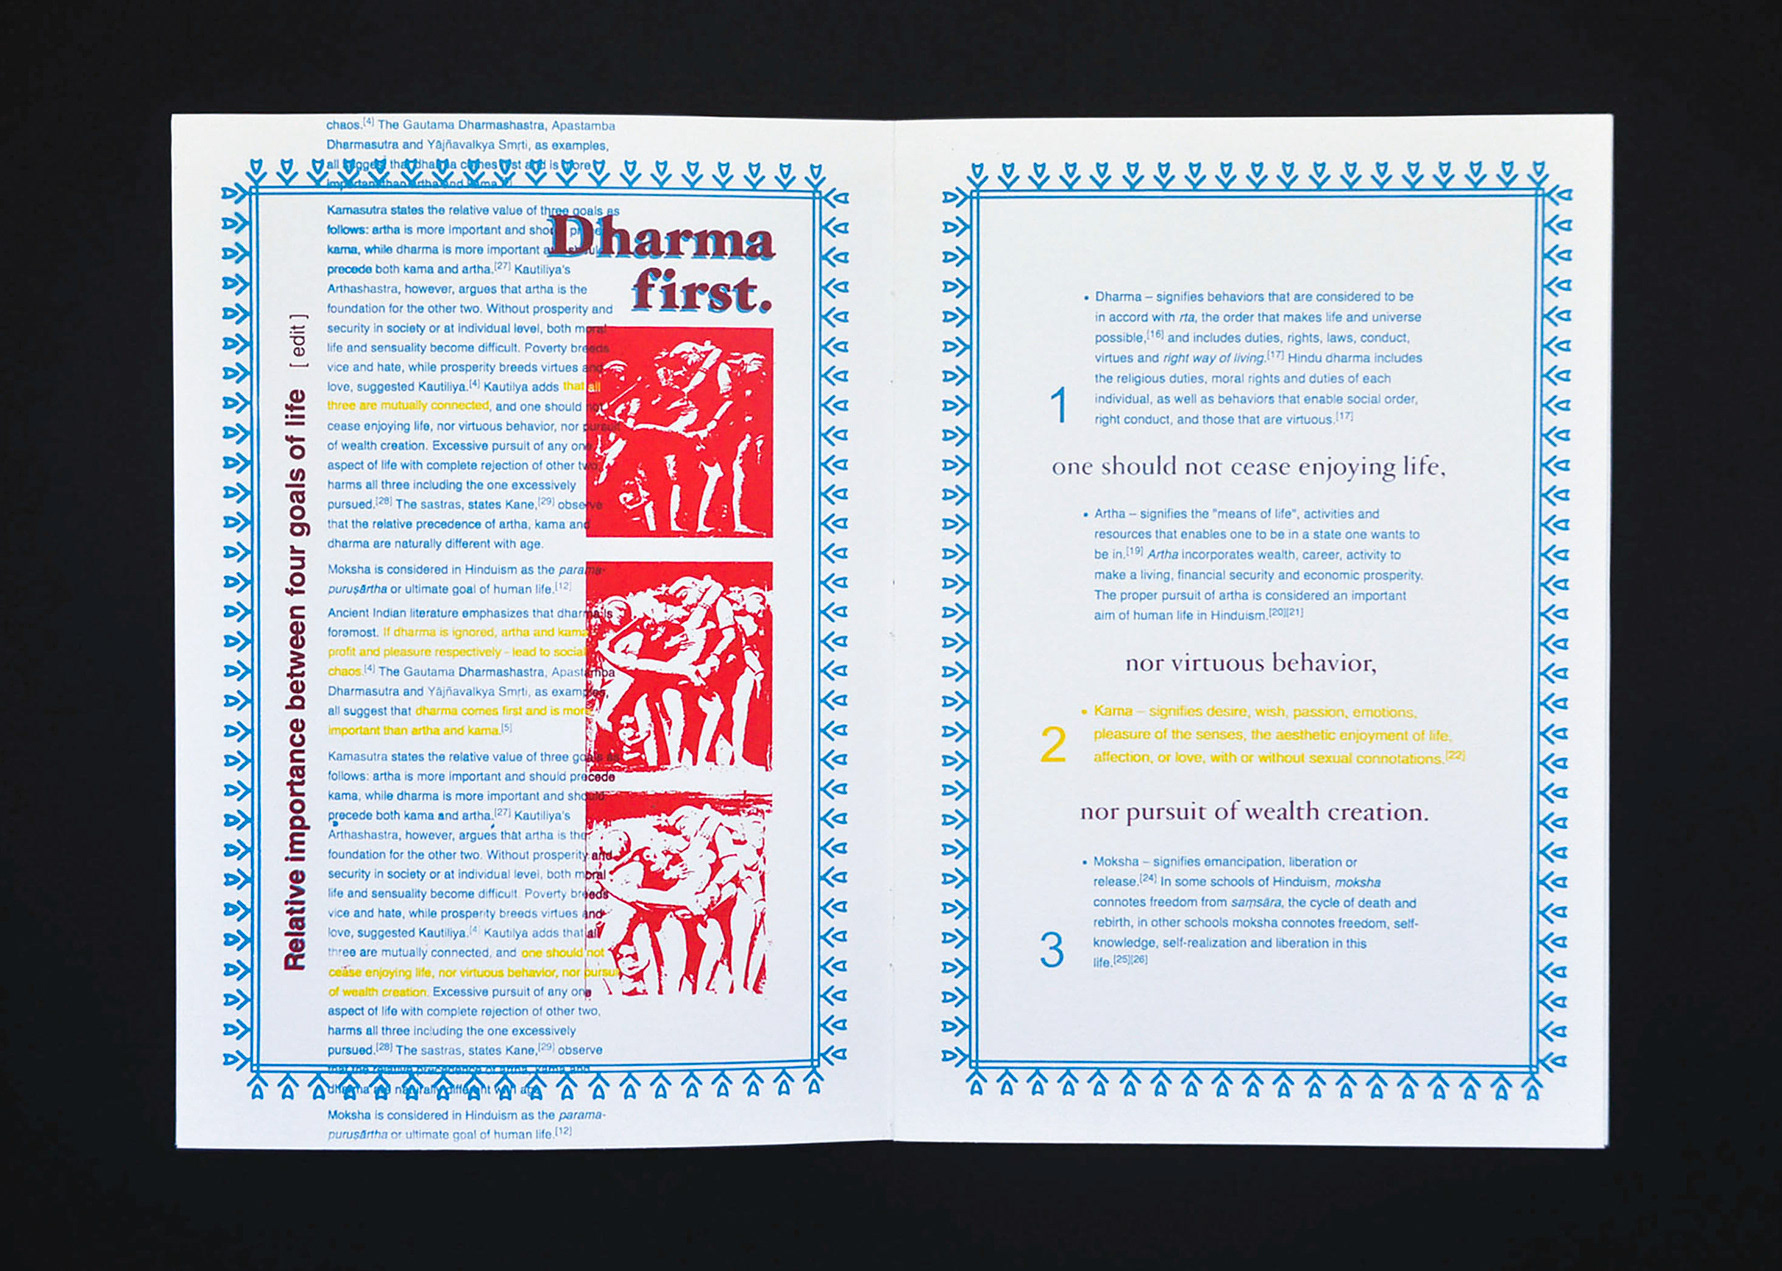 chaos.[4] The Gautama Dharmashastra, Apastamba
Dharmasutra and Yājñavalkya Smṛti, as examples,
all suggest that dharma comes first and is more
important than artha and kama.[5]
Kamasutra states the relative value of three goals as
follows: artha is more important and should precede
kama, while dharma is more important and should
precede both kama and artha.[27] Kautiliya's
Arthashastra, however, argues that artha is the
foundation for the other two. Without prosperity and
security in society or at individual level, both moral
life and sensuality become difficult. Poverty breeds
vice and hate, while prosperity breeds virtues and
love, suggested Kautiliya.[4] Kautilya adds that all
three are mutually connected, and one should not
cease enjoying life, nor virtuous behavior, nor pursuit
of wealth creation. Excessive pursuit of any one
aspect of life with complete rejection of other two,
harms all three including the one excessively
pursued.[28] The sastras, states Kane,[29] observe
that the relative precedence of artha, kama and
dharma are naturally different with age.
Moksha is considered in Hinduism as the parama-
puruṣārtha or ultimate goal of human life.[12]
Ancient Indian literature emphasizes that dharma is
foremost. If dharma is ignored, artha and kama
profit and pleasure respectively - lead to social
chaos.[4] The Gautama Dharmashastra, Apastamba
Dharmasutra and Yājñavalkya Smṛti, as examples,
all suggest that dharma comes first and is more
important than artha and kama.[5]
Kamasutra states the relative value of three goals as
follows: artha is more important and should precede
kama, while dharma is more important and should
precede both kama and artha.[27] Kautiliya's
Arthashastra, however, argues that artha is the
foundation for the other two. Without prosperity and
security in society or at individual level, both moral
life and sensuality become difficult. Poverty breeds
vice and hate, while prosperity breeds virtues and
love, suggested Kautiliya.[4] Kautilya adds that all
three are mutually connected, and one should not
cease enjoying life, nor virtuous behavior, nor pursuit
of wealth creation. Excessive pursuit of any one
aspect of life with complete rejection of other two,
harms all three including the one excessively
pursued.[28] The sastras, states Kane,[29] observe
that the relative precedence of artha, kama and
dharma are naturally different with age
Moksha is considered in Hinduism as the parama-
puruṣārtha or ultimate goal of human life.[12]
Relative importance between four goals of life [ edit ]
Dharma
first.
• Dharma – signifies behaviors that are considered to be
in accord with rta, the order that makes life and universe
possible,[16] and includes duties, rights, laws, conduct,
virtues and right way of living.[17] Hindu dharma includes
the religious duties, moral rights and duties of each
individual, as well as behaviors that enable social order,
right conduct, and those that are virtuous.[17]
1
one should not cease enjoying life,
• Artha – signifies the "means of life", activities and
resources that enables one to be in a state one wants to
be in.[19] Artha incorporates wealth, career, activity to
make a living, financial security and economic prosperity.
The proper pursuit of artha is considered an important
aim of human life in Hinduism.[20][21]
nor virtuous behavior,
• Kama – signifies desire, wish, passion, emotions,
pleasure of the senses, the aesthetic enjoyment of life,
affection, or love, with or without sexual connotations.[22]
2
nor pursuit of wealth creation.
• Moksha – signifies emancipation, liberation or
release.[24] In some schools of Hinduism, moksha
connotes freedom from saṃsāra, the cycle of death and
rebirth, in other schools moksha connotes freedom, self-
knowledge, self-realization and liberation in this
life.[25][26]
3